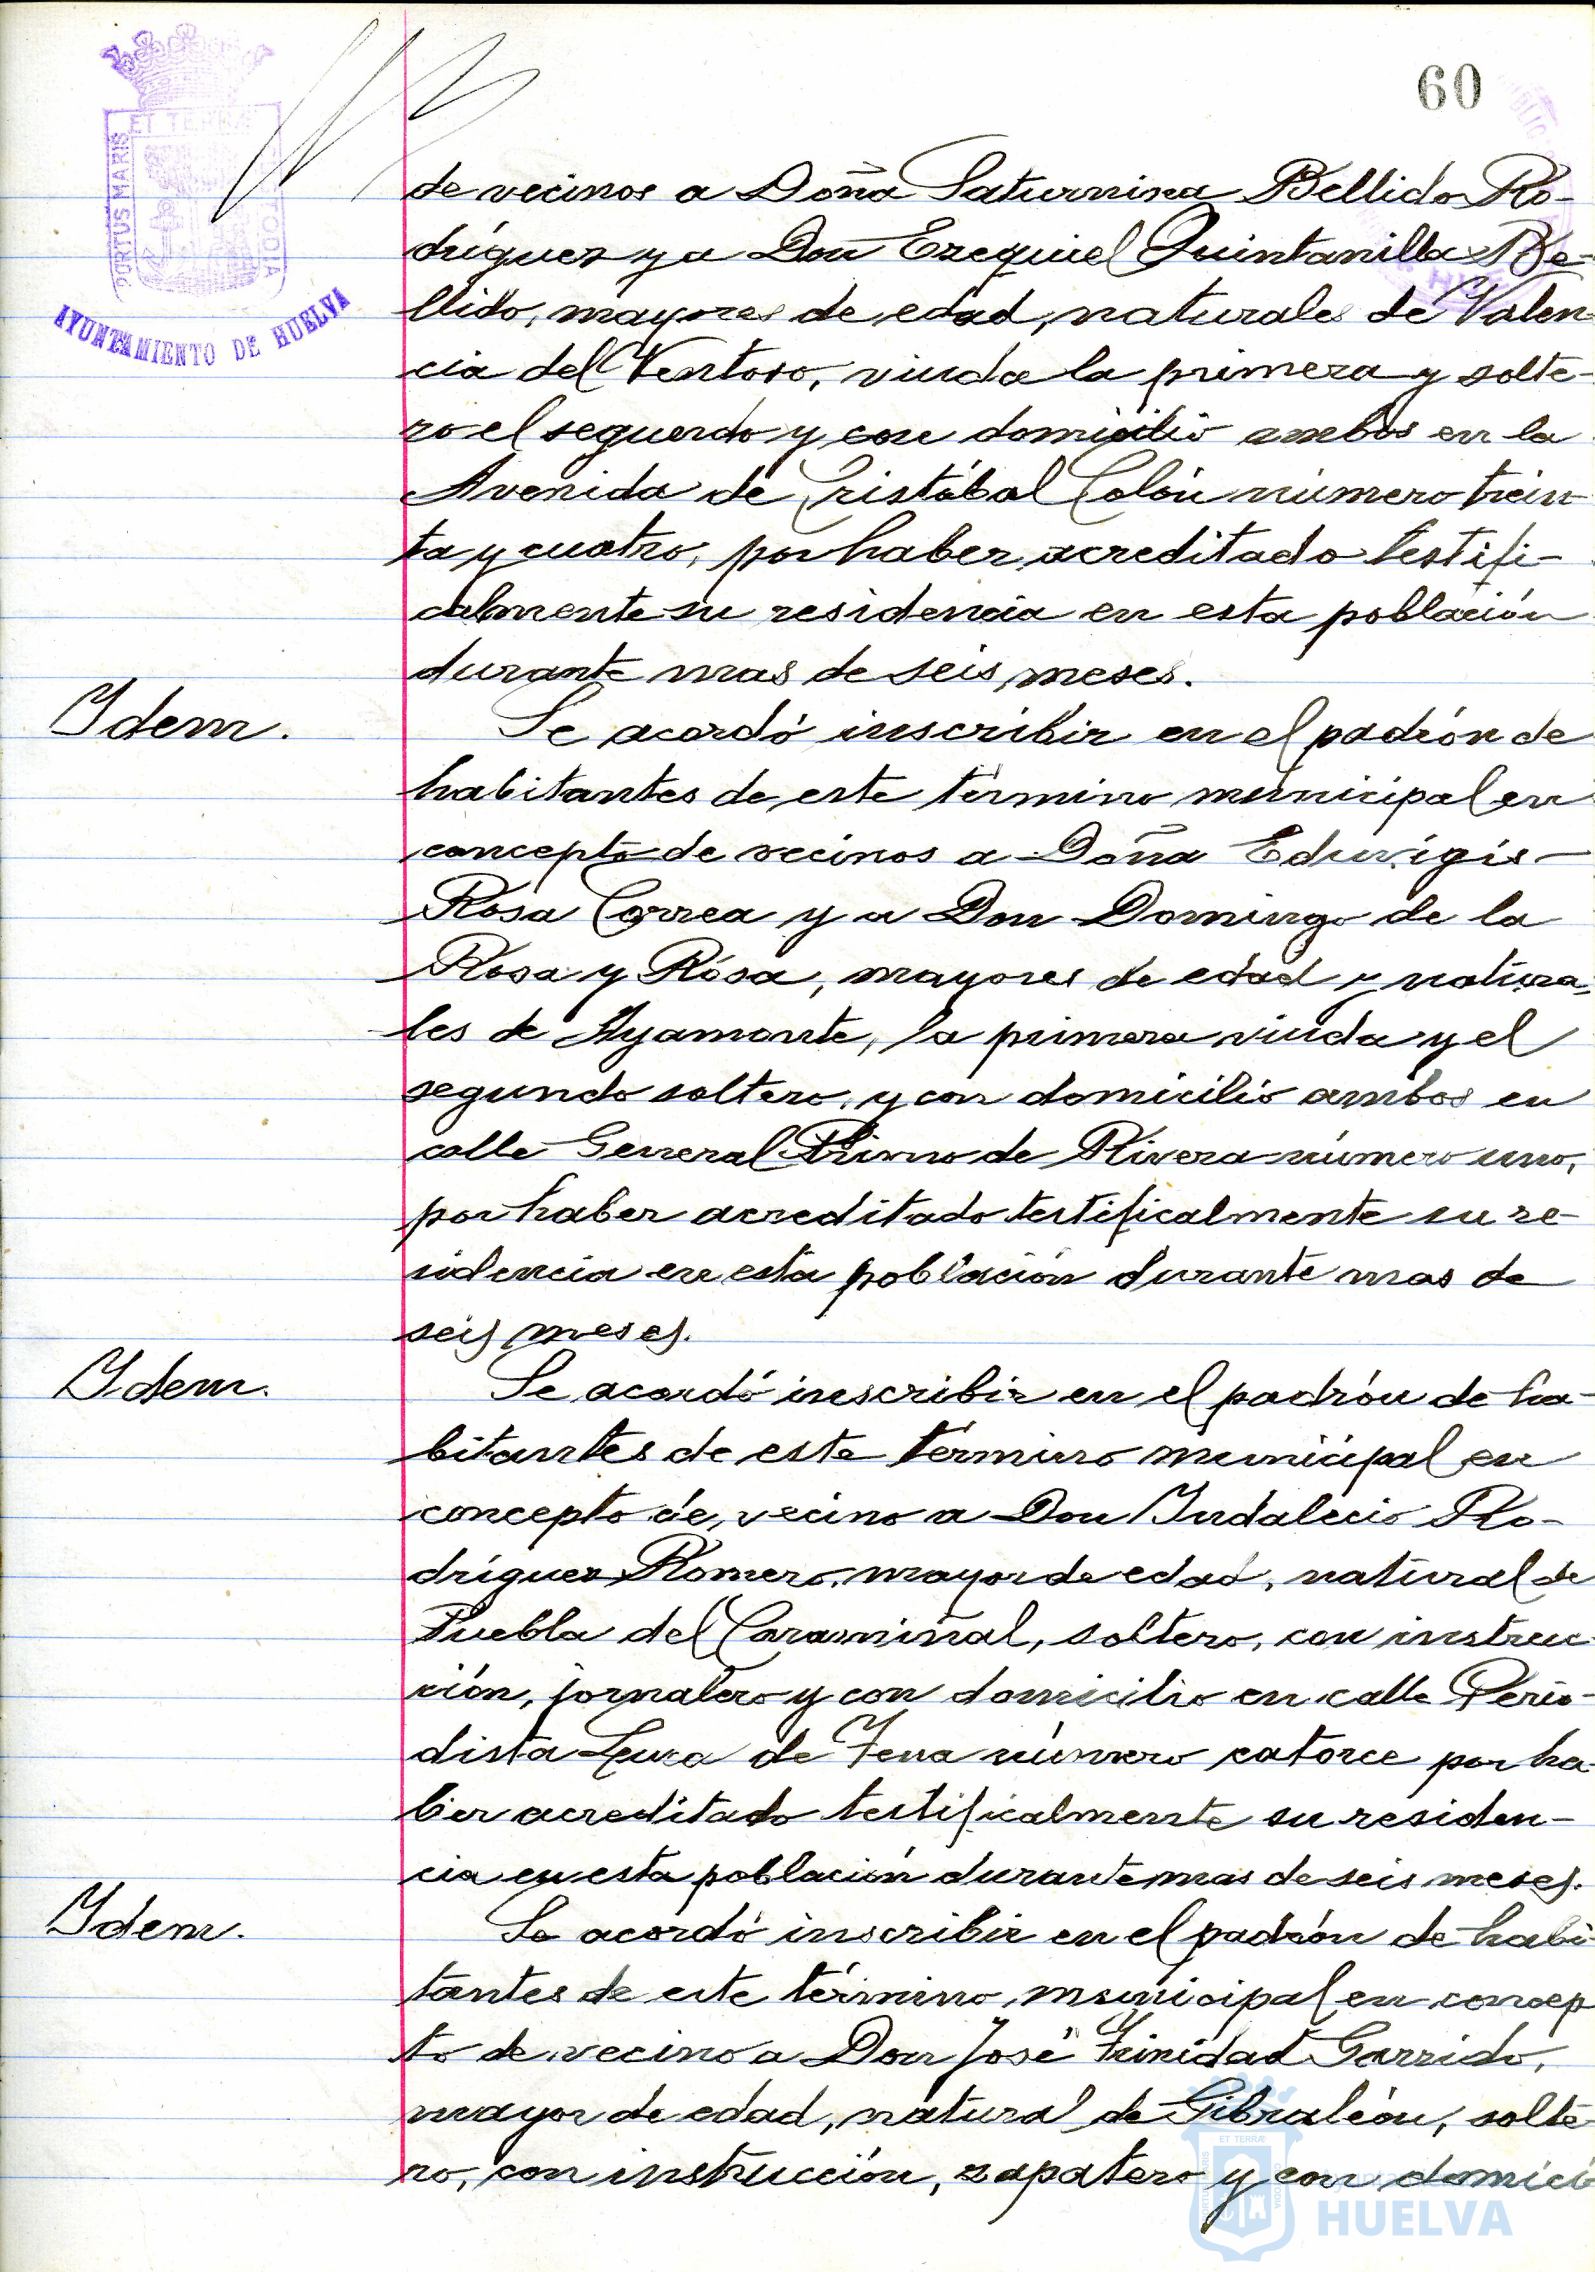 60
ET TERRÆ
PORTUS MARIS
AYUNTAMIENTO DE HUELVA
de vecinos a Doña Saturnina Bellido Ro-
dríguez y a Don Ezequiel Quintanilla Be-
llido, mayores de edad, naturales de Valen
cia del Ventoso, viuda la primera y solte-
ro el segundo y con domicilio ambos en la
Avenida de Cristóbal Colón número trein
ta y cuatro, por haber acreditado testifi-
calmente su residencia en esta población
durante mas de seis meses.
Idem.
Se acordó inscribir en el padrón de
habitantes de este término municipal en
concepto de vecinos a Doña Eduvigis
Rosa Correa y a Don Domingo de la
Rosa y Rosa, mayores de edad y natura-
les de Ayamonte, la primera viuda y el
segundo soltero, y con domicilio ambos en
calle General Primo de Rivera número uno,
por haber acreditado testificalmente su re-
sidencia en esta población durante mas de
seis meses.
Idem.
Se acordó inscribir en el padrón de ha-
bitantes de este término municipal en
concepto de vecino a Don Indalecio Ro-
dríguez Romero, mayor de edad, natural de
Puebla del Caramiñal, soltero, con instruc
ción, jornalero y con domicilio en calle Perio-
dista Luca de Tena número catorce por ha-
ber acreditado testificalmente su residen-
cia en esta población durante mas de seis meses.
Idem.
Se acordó inscribir en el padrón de habi-
tantes de este término municipal en concep
to de vecino a Don José Trinidad Garrido,
mayor de edad, natural de Gibraleón, solte-
ro, con instrucción, zapatero y con domici
HUELVA